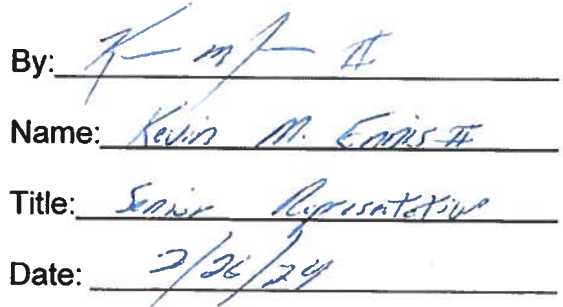 By: K M II
Name: Kevin M. Ennis II
Title: Senior Representative
Date: 2/26/24